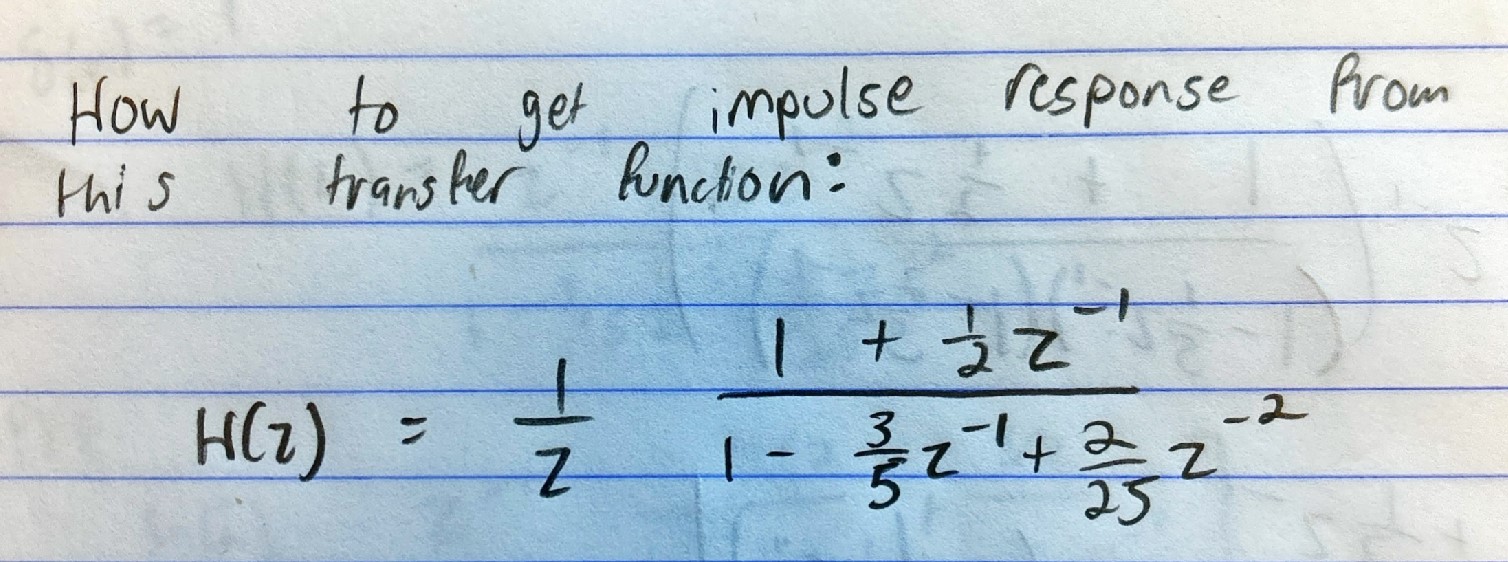 How to get impulse response from
this transfer function:
H(z) = \frac{1}{z} \frac{1 + \frac{1}{2} z^{-1}}{1 - \frac{3}{5} z^{-1} + \frac{2}{25} z^{-2}}